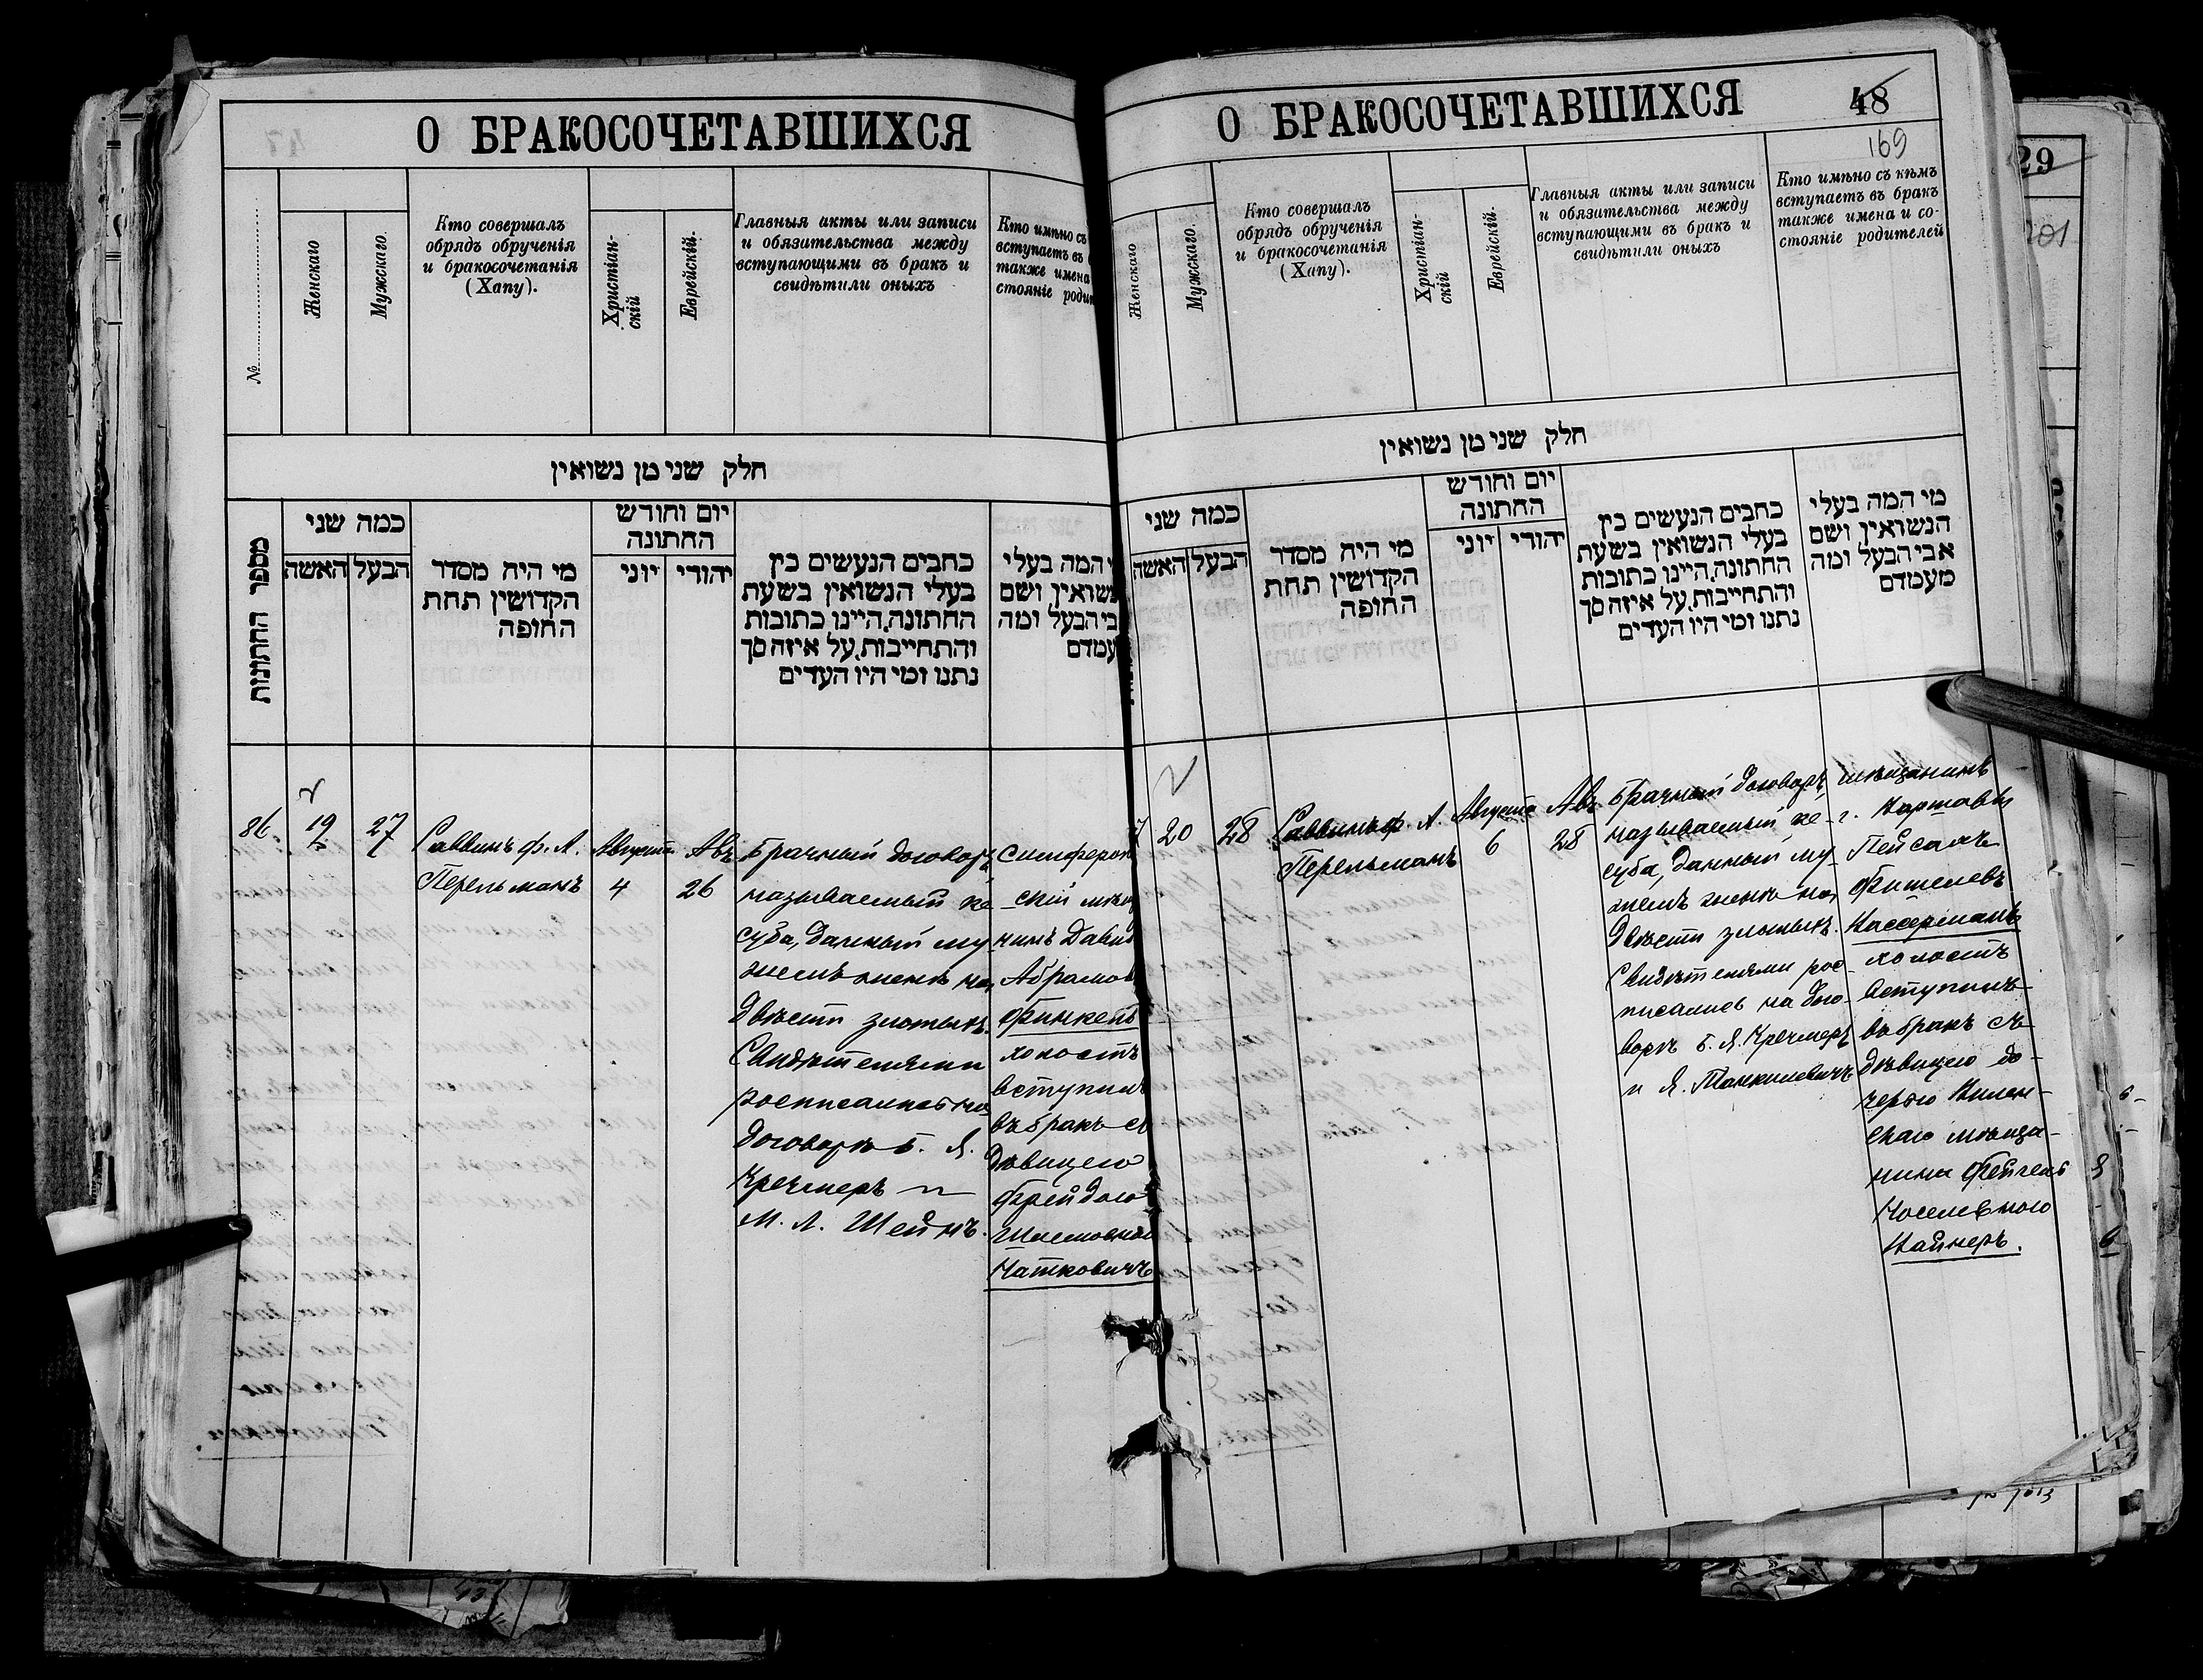 О БРАКОСОЧЕТАВШИХСЯ
№
Женскаго
Мужскаго.
Кто совершалъ
обрядъ обрученія
и бракосочетанія
(Хапу).
Христіан-
скій
Еврейскій.
Главныя акты или записи
и обязательства между
вступающими въ бракъ и
свидѣтили оныхъ
Кто имѣно съ
вступаетъ въ
также имена
стояніе
חלק שני מן נשואין
מספר החתונות
כמה שני
האשה
הבעל
מי היה מסדר
הקדושין תחת
החופה
יום וחודש
החתונה
יוני
יהודי
כתבים הנעשים בין
בעלי הנשואין בשעת
החתונה, היינו כתובות
והתחייבות, על איזה סך
נתנו ומי היו העדים
המה בעלי
נשואין ושם
הבעל ומה
86
19
27
Раввинъ ф. А.
Перельманъ
Августа
4
Авъ
26
Брачный договоръ,
называемый ке-
суба, данный му-
жемъ женѣ на
двѣсти злотыхъ.
Свидѣтелями
росписались на
договорѣ Б. Я.
Кречмеръ и
М. Л. Шейнъ.
скій
Давид
Абрамов
холостъ
вступилъ
въ бракъ съ
дѣвицею
Фрейдою
О БРАКОСОЧЕТАВШИХСЯ
48
169
Женскаго
Мужскаго.
Кто совершалъ
обрядъ обрученія
и бракосочетанія
(Хапу).
Христіан-
скій
Еврейскій.
Главныя акты или записи
и обязательства между
вступающими въ бракъ и
свидѣтили оныхъ
Кто имѣно съ кѣмъ
вступаетъ въ бракъ
также имена и со-
стояніе родителей
חלק שני מן נשואין
כמה שני
האשה
הבעל
מי היה מסדר
הקדושין תחת
החופה
יום וחודש
החתונה
יוני
יהודי
כתבים הנעשים בין
בעלי הנשואין בשעת
החתונה, היינו כתובות
והתחייבות, על איזה סך
נתנו ומי היו העדים
מי המה בעלי
הנשואין ושם
אבי הבעל ומה
מעמדם
7
20
28
Раввинъ ф. А.
Перельманъ
Августа
6
Авъ
28
Брачный договоръ,
называемый ке-
суба, данный му-
жемъ женѣ на
двѣсти злотыхъ.
Свидѣтелями рос-
писались на дого-
ворѣ Б. Я. Кречмеръ
и Я.
мѣщанинъ
г.
Пейсахъ
Фишелевъ
холостъ
вступилъ
въ бракъ съ
дѣвицею до-
черью Вилен-
скаго мѣща-
нина
29
201